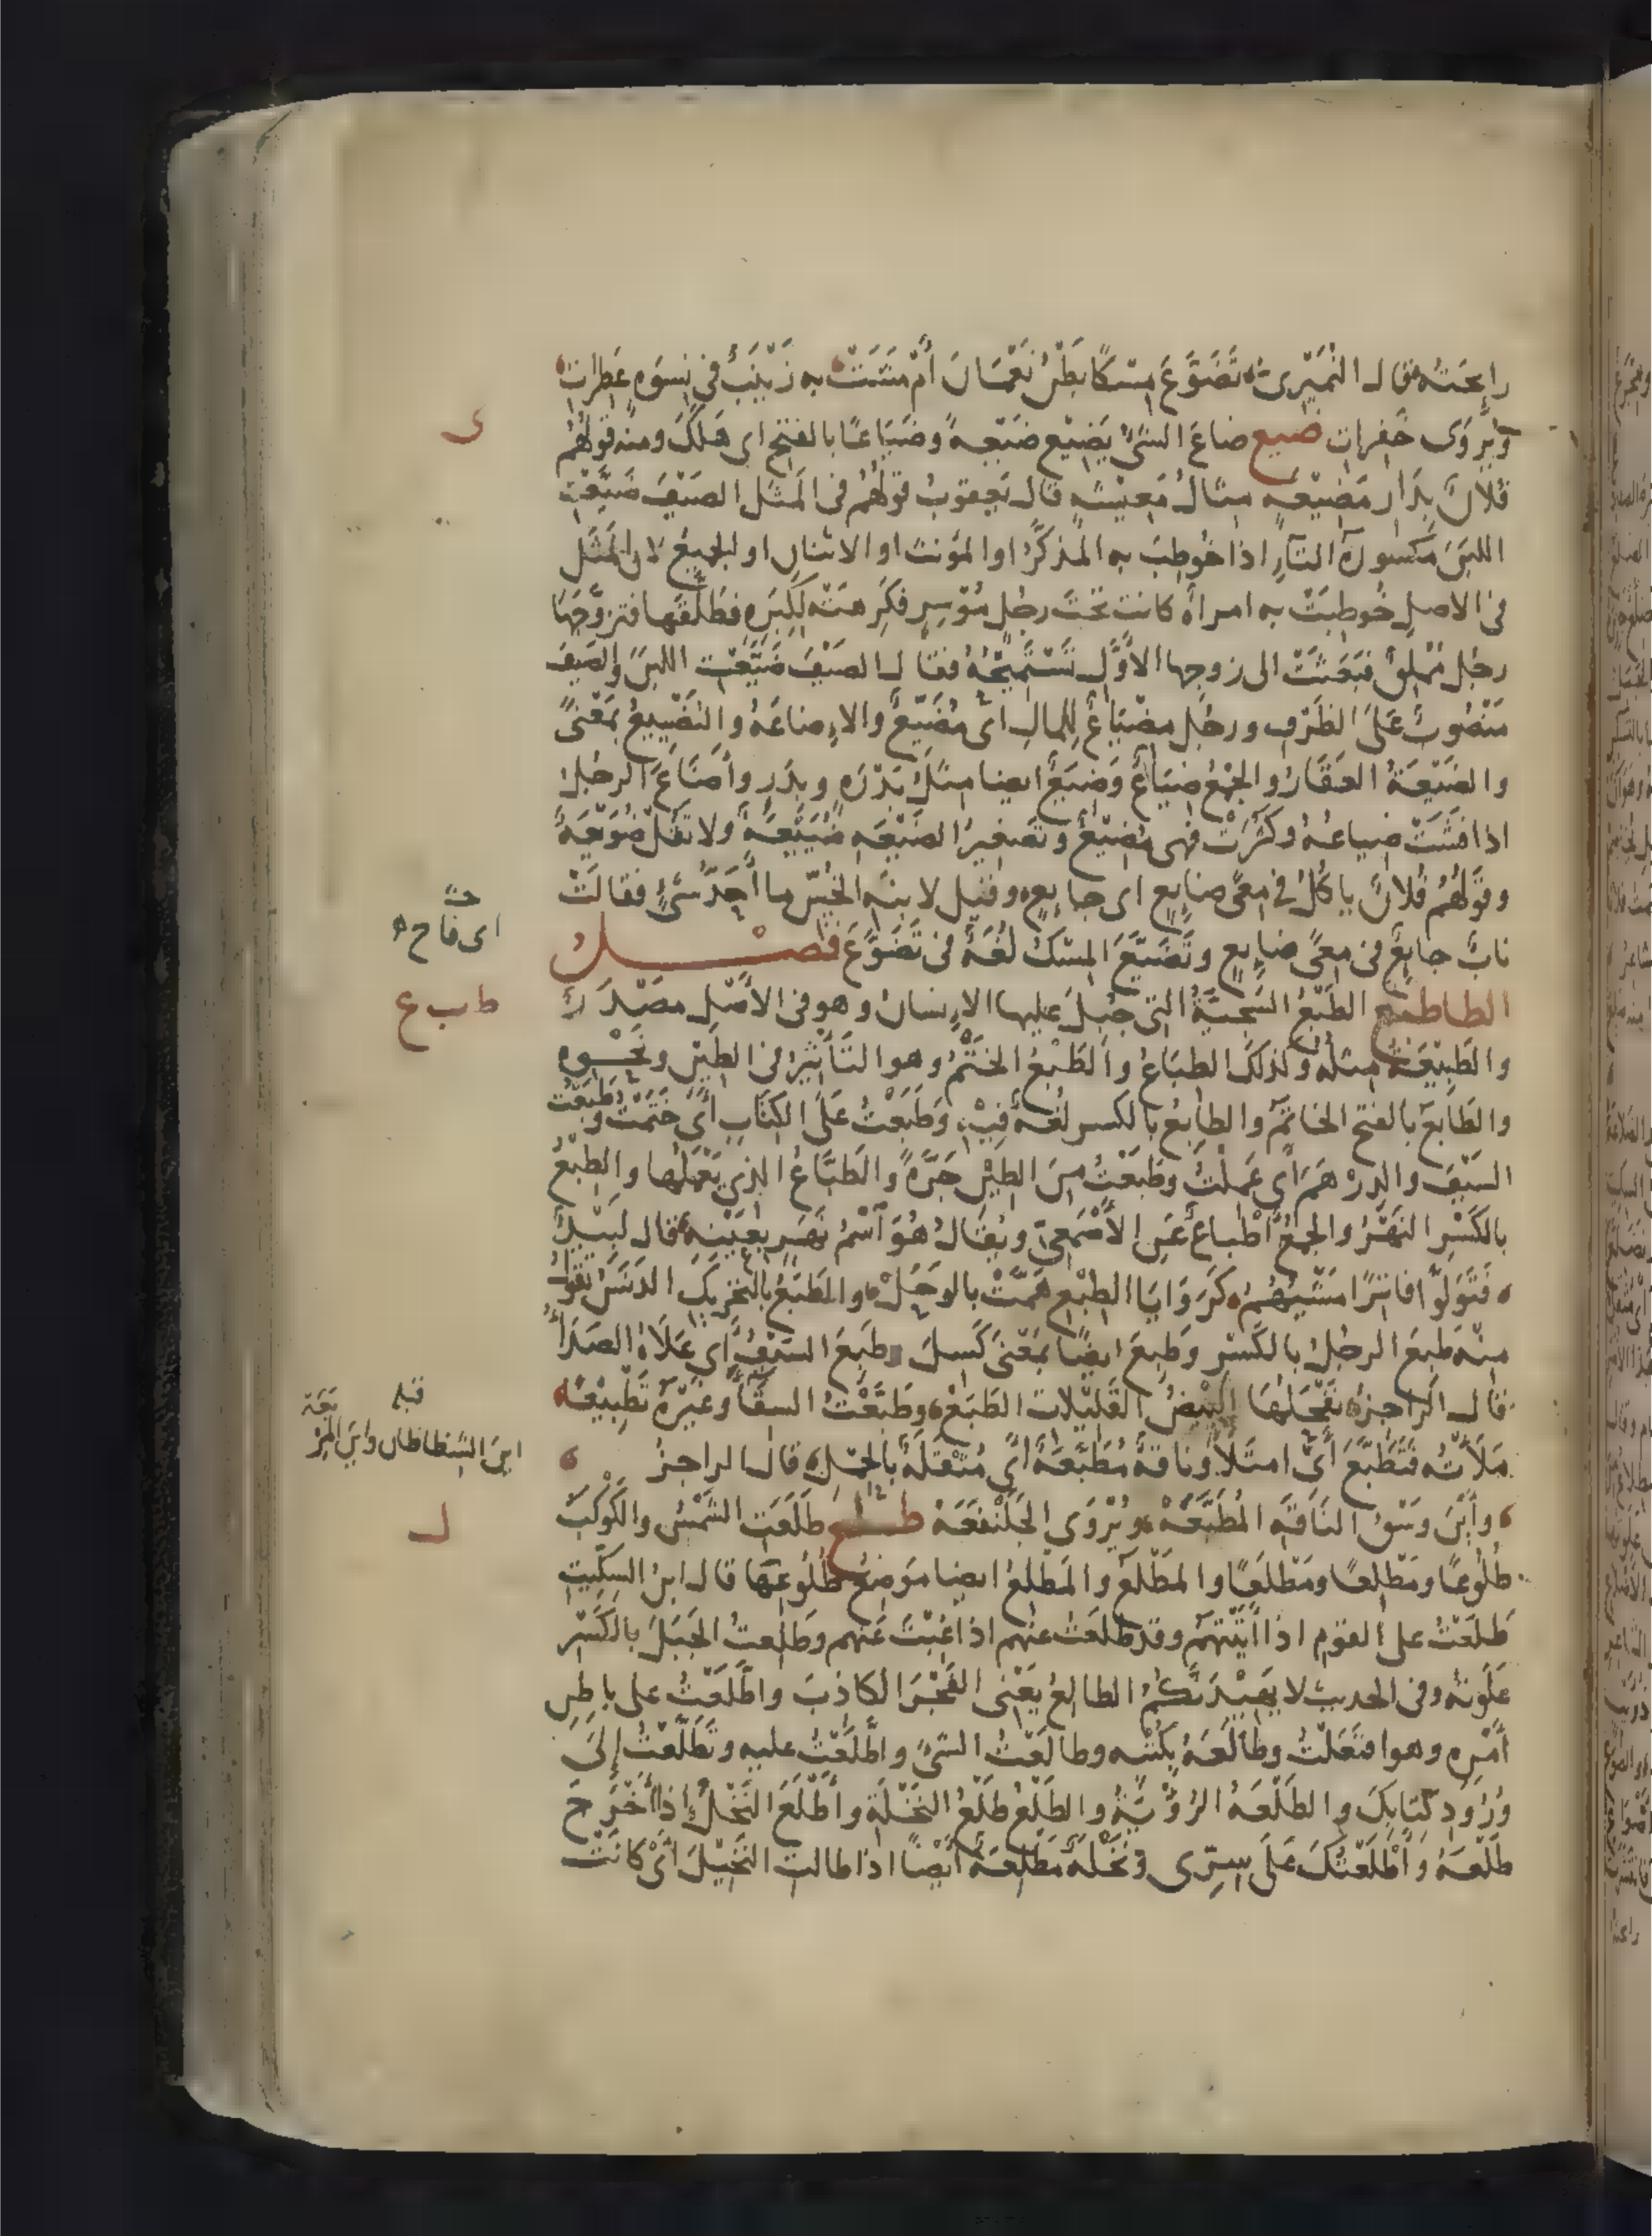 رايحته قال النُمَيْرِىّ تَضَوَّعَ مِسْكًا بَطْنُ نَعْمَانَ أَنْ مَشَتْ به زَيْنَبٌ في نِسْوَةٍ عَطِراتِ
ويُرْوَى خَفِرات ضيع ضاعَ الشىُ يَضِيْع ضَيْعةً وضَيَاعًا بالفتح اى هَلَكَ ومنه قولُهُم
فُلانٌ بِدَار مَضِيْعه مثالُ مَعِيْشه قال يَعقوبُ قولُهُم فى المَثَل الصَيْفَ ضَيَّعْتِ
اللبَنَ مَكسورة التآءِ اذا خُوطِبَ به المذكَّرُ او المؤنث او الاثنان او الجميعُ لان المَثَل
فى الاصلِ خُوطِبَتْ به امراة كانت تحتَ رجُلٍ مُوْسِرٍ فكَرِهَتْه لِكِبَرِه فطلَّقَها فتزوَّجَها
رجُل مُمْلِقٌ فبَعَثَتْ الى زوجها الأوَّل تَسْتَمِيْحُهُ فقال الصَيْفَ ضَيَّعْتِ اللبنَ والصَيفَ
مَنْصُوبٌ عَلَى الظَرْفِ ورجُل مِضْيَاعٌ لِلمالِ اىْ مُضَيِّعٌ والاِضاعَةُ والتَضْيِيعُ بمَعْنًى
والضَيْعَةُ العَقَارُ والجَمْعُ ضِيَاعٌ وَضِيَعٌ ايضا مِثلُ بَدْرَه وبِدَرٍ وأَضَاعَ الرجُلُ
اذا فَشَتْ ضِياعُهُ وكَثُرَتْ فهى مُضِيْعٌ وتَصْغِيرُ الضَيْعَهِ ضُيَيْعَةٌ ولا تَقُل ضُوَيْعَةٌ
وقولُهُم فُلانٌ ياكُلُ في مِعًى ضايِعٍ اى جايِعٍ وقيل لابنهِ الخُسّ ما أَحَدُّ شىْءٍ فقالَتْ
اى فاح
نابٌ جايِعٌ فى مِعًى ضايِعٍ وتَضَيَّعَ المِسْكُ لُغَةٌ فى تَضَوَّعَ فصل
الطا طبع الطَبْعُ السَجِيَّةُ التى جُبِلَ عليها الاِنسانُ وهو فى الأصْلِ مصْدَرٌ
ط ب ع
والطَبِيْعَةُ مثله وكذلكَ الطباعُ والطَبْعُ الخَتْمُ وهو التَأثِيْرُ فى الطِيْنِ ونَحْوِه
والطَابَعُ بالفتح الخاتَمُ والطابِعُ بالكسر لُغةٌ فِيْهِ وَطَبَعْتُ عَلَى الكِتَابِ اىْ خَتَمْتُ وطَبَعْتُ
السَيْفَ والدِرْهَمَ اىْ عَمِلْتُ وطَبَعْتُ مِنَ الطِيْنِ جَرَّةً والطَبَّاعُ الذي يَعْمَلُها والطِبْعُ
بالكَسْرِ النَهْرُ والجمعُ أَطْباعٌ عَنِ الأَصْمَعِىّ ويُقَالُ هُوَ اسْمُ نَهَرٍ بعَيْنِهِ قال لَبِيْدٌ
فَتَوَلَّوا فاتِرًا مَشْيُهُمُ كَرَوَايَا الطِبْعِ هَمَّتْ بالوَحَلْ والطَبَعُ بالتحريكِ الدَنَسُ يقولُ
مِنْه طَبِعَ الرجُلُ بالكَسْرِ وَطَبِعَ ايضًا بمَعْنَى كَسِلَ وطَبِعَ السَيْفُ اىْ عَلاهُ الصَدَأُ
قال الراجزُ نَفْحَلُهَا البِيْضَ القَلِيْلاتِ الطَبَعْ وطَبَّعْتُ السِقَآءَ وغَيْرَهُ تَطْبِيْعًا
قبله
اينَ الشظاظان واينَ المِرْبَعَة
مَلَأتُه فتَطَبَّعَ اىْ امتَلَأ وناقةٌ مُطَبَّعَةٌ اىْ مُثْقَلَةٌ بالحِمْلِ قال الراجزُ
وأَيْنَ وَسْقُ النَاقةِ المُطَبَّعَهْ ويُرْوَى الجَلَنْفَعَهْ طلع طَلَعَتِ الشَمْسُ والكَوْكَبُ
ل
طُلُوعًا ومَطْلِعًا ومَطْلَعًا والمَطْلَعُ والمَطْلِعُ ايضا مَوْضِعُ طُلُوعِها قال ابنُ السِكِّيتِ
طَلَعْتُ على القومِ اذا أَتَيْتَهُم وقد طَلَعْتُ عنهم اذا غِبْتَ عَنْهم وطَلِعْتُ الجَبَلَ بالكَسْرِ
عَلَوتهُ وفى الحديث لا يَهِيْدَنَّكُمُ الطالِعُ يَعْنى الفَجْرَ الكاذِبَ واطَّلَعْتُ على باطِنِ
أَمْرِه وهو افتَعَلْتُ وطَالَعَهُ بِكُتُبِه وطالَعْتُ الشىْءَ واطَّلَعْتُ عليه وتَطَلَّعْتُ إلَى
وُرُودِ كِتابِكَ والطَلْعَةُ الرُؤْيَةُ والطَلْعُ طَلْعُ النَخْلَةِ وأَطْلَعَ النَخْلُ إذا أَخْرَجَ
طَلْعَهُ وأَطْلَعْتُكَ عَلَى سِرِّى ونَخْلَةٌ مُطْلِعَةٌ أَيْضًا اذا طالت النَخِيْلَ اىْ كانَتْ